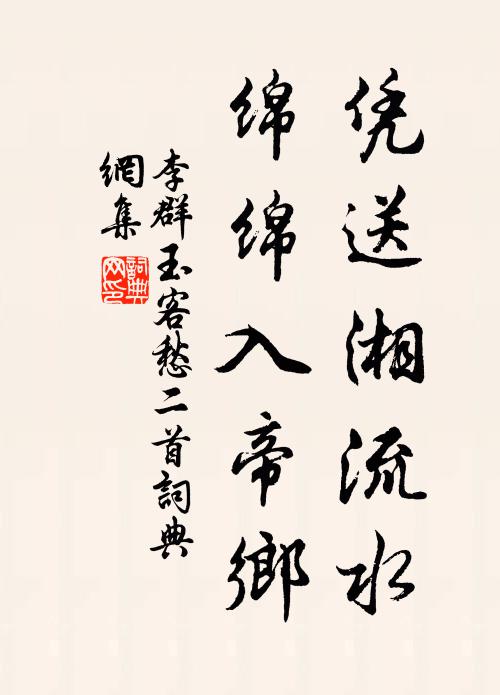 凭送湘流水
绵绵入帝鄉
李群玉客愁二首詞典
網集
詞典網印